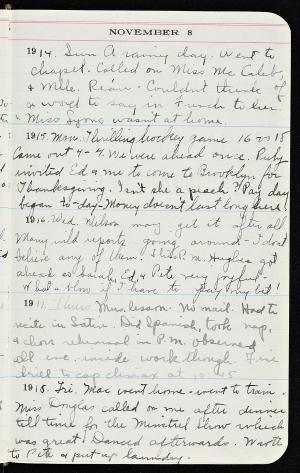 NOVEMBER 8
1914. Sun A rainy day. Went to
chapel. Called on Miss McCaleb,
& Mlle. Péan. Couldn't think of
a word to say in French to her.
Miss Lyons wasn't at home.
1915. Mon. Thrilling hockey game 16 vs 18
Came out 4-4. We were ahead once. Ruby
invited Ed & me to come to Brooklyn for
Thanksgiving. Isn't she a peach? Pay day
began to-day-Money doesn't last long here
1916. Wed. Wilson may get it after all
Many wild reports going around - I don't
believe any of them! This P.M. Hughes got
ahead so Sarah, Ed, & Pete very joyful-
What a blow if I have to pay my bet!
1917. Thurs Mus. lesson. No mail. Had to
recite in Latin. Did Spanish, took nap,
& choir rehearsal in P.M. observed
all eve. inside work though. Fire
drill to cap climax at 10:15
1918. Fri. Mac went home - went to train.
Miss Douglas called on me after dinner
till time for the Minstrel Show which
was great! Danced afterwards. Wrote
to Pete & put up laundry.